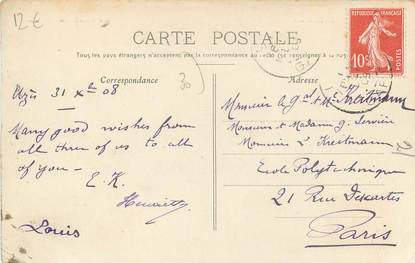 12€
CARTE POSTALE
Tous les pays étrangers n'acceptent pas la correspondance au recto (se renseigner à la Poste)
RÉPUBLIQUE FRANÇAISE
10c
Correspondance
Adresse
30
31 Xbre 08
Many good wishes from
all three of us to all
of you —
E. K.
Louis
Monsieur le Gal et Me Kreitmann
Monsieur et Madame G. Servière
Monsieur L Kreitmann
Ecole Polytechnique
21 Rue Descartes
Paris
21